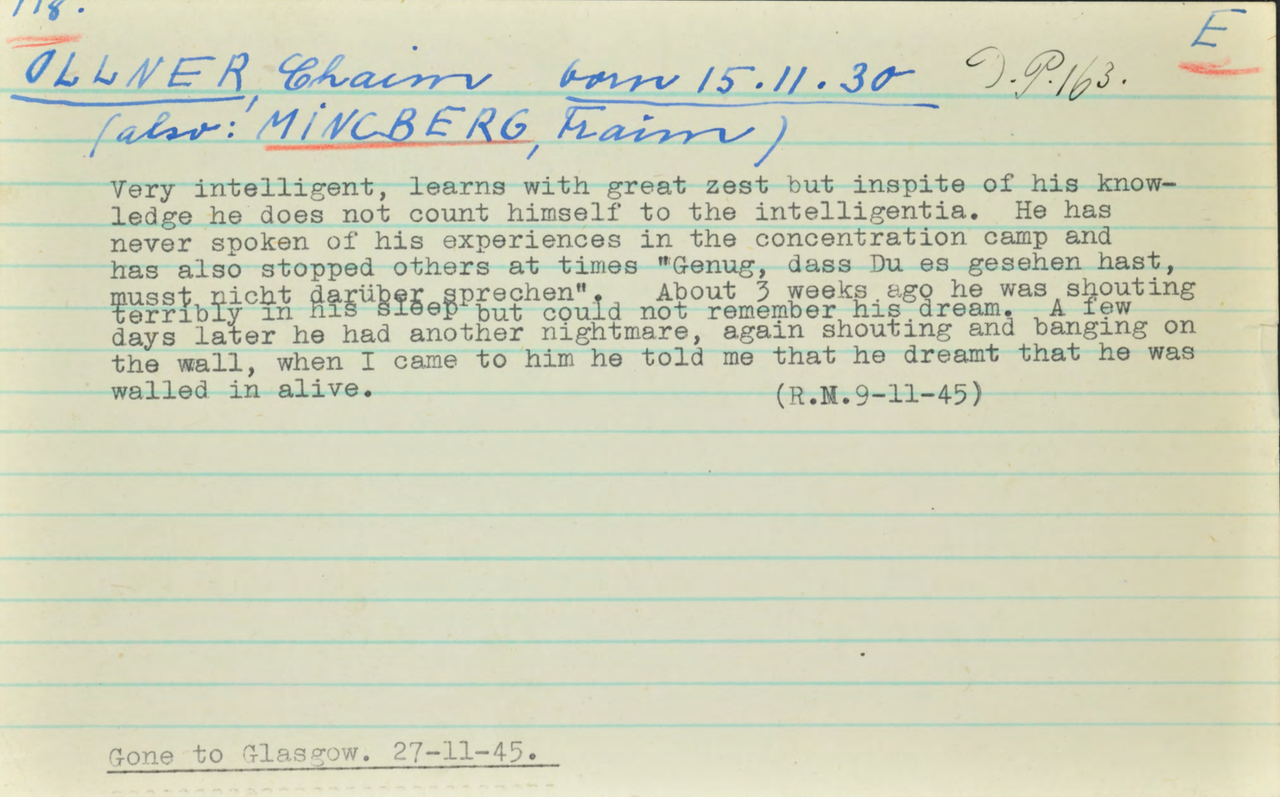 118.
E
OLLNER, Chaim born 15.11.30 D.P.163.
(also: MINCBERG, Fraim)
Very intelligent, learns with great zest but inspite of his know-
ledge he does not count himself to the intelligentia. He has
never spoken of his experiences in the concentration camp and
has also stopped others at times "Genug, dass Du es gesehen hast,
musst nicht darüber sprechen". About 3 weeks ago he was shouting
terribly in his sleep but could not remember his dream. A few
days later he had another nightmare, again shouting and banging on
the wall, when I came to him he told me that he dreamt that he was
walled in alive. (R.M.9-11-45)
Gone to Glasgow. 27-11-45.